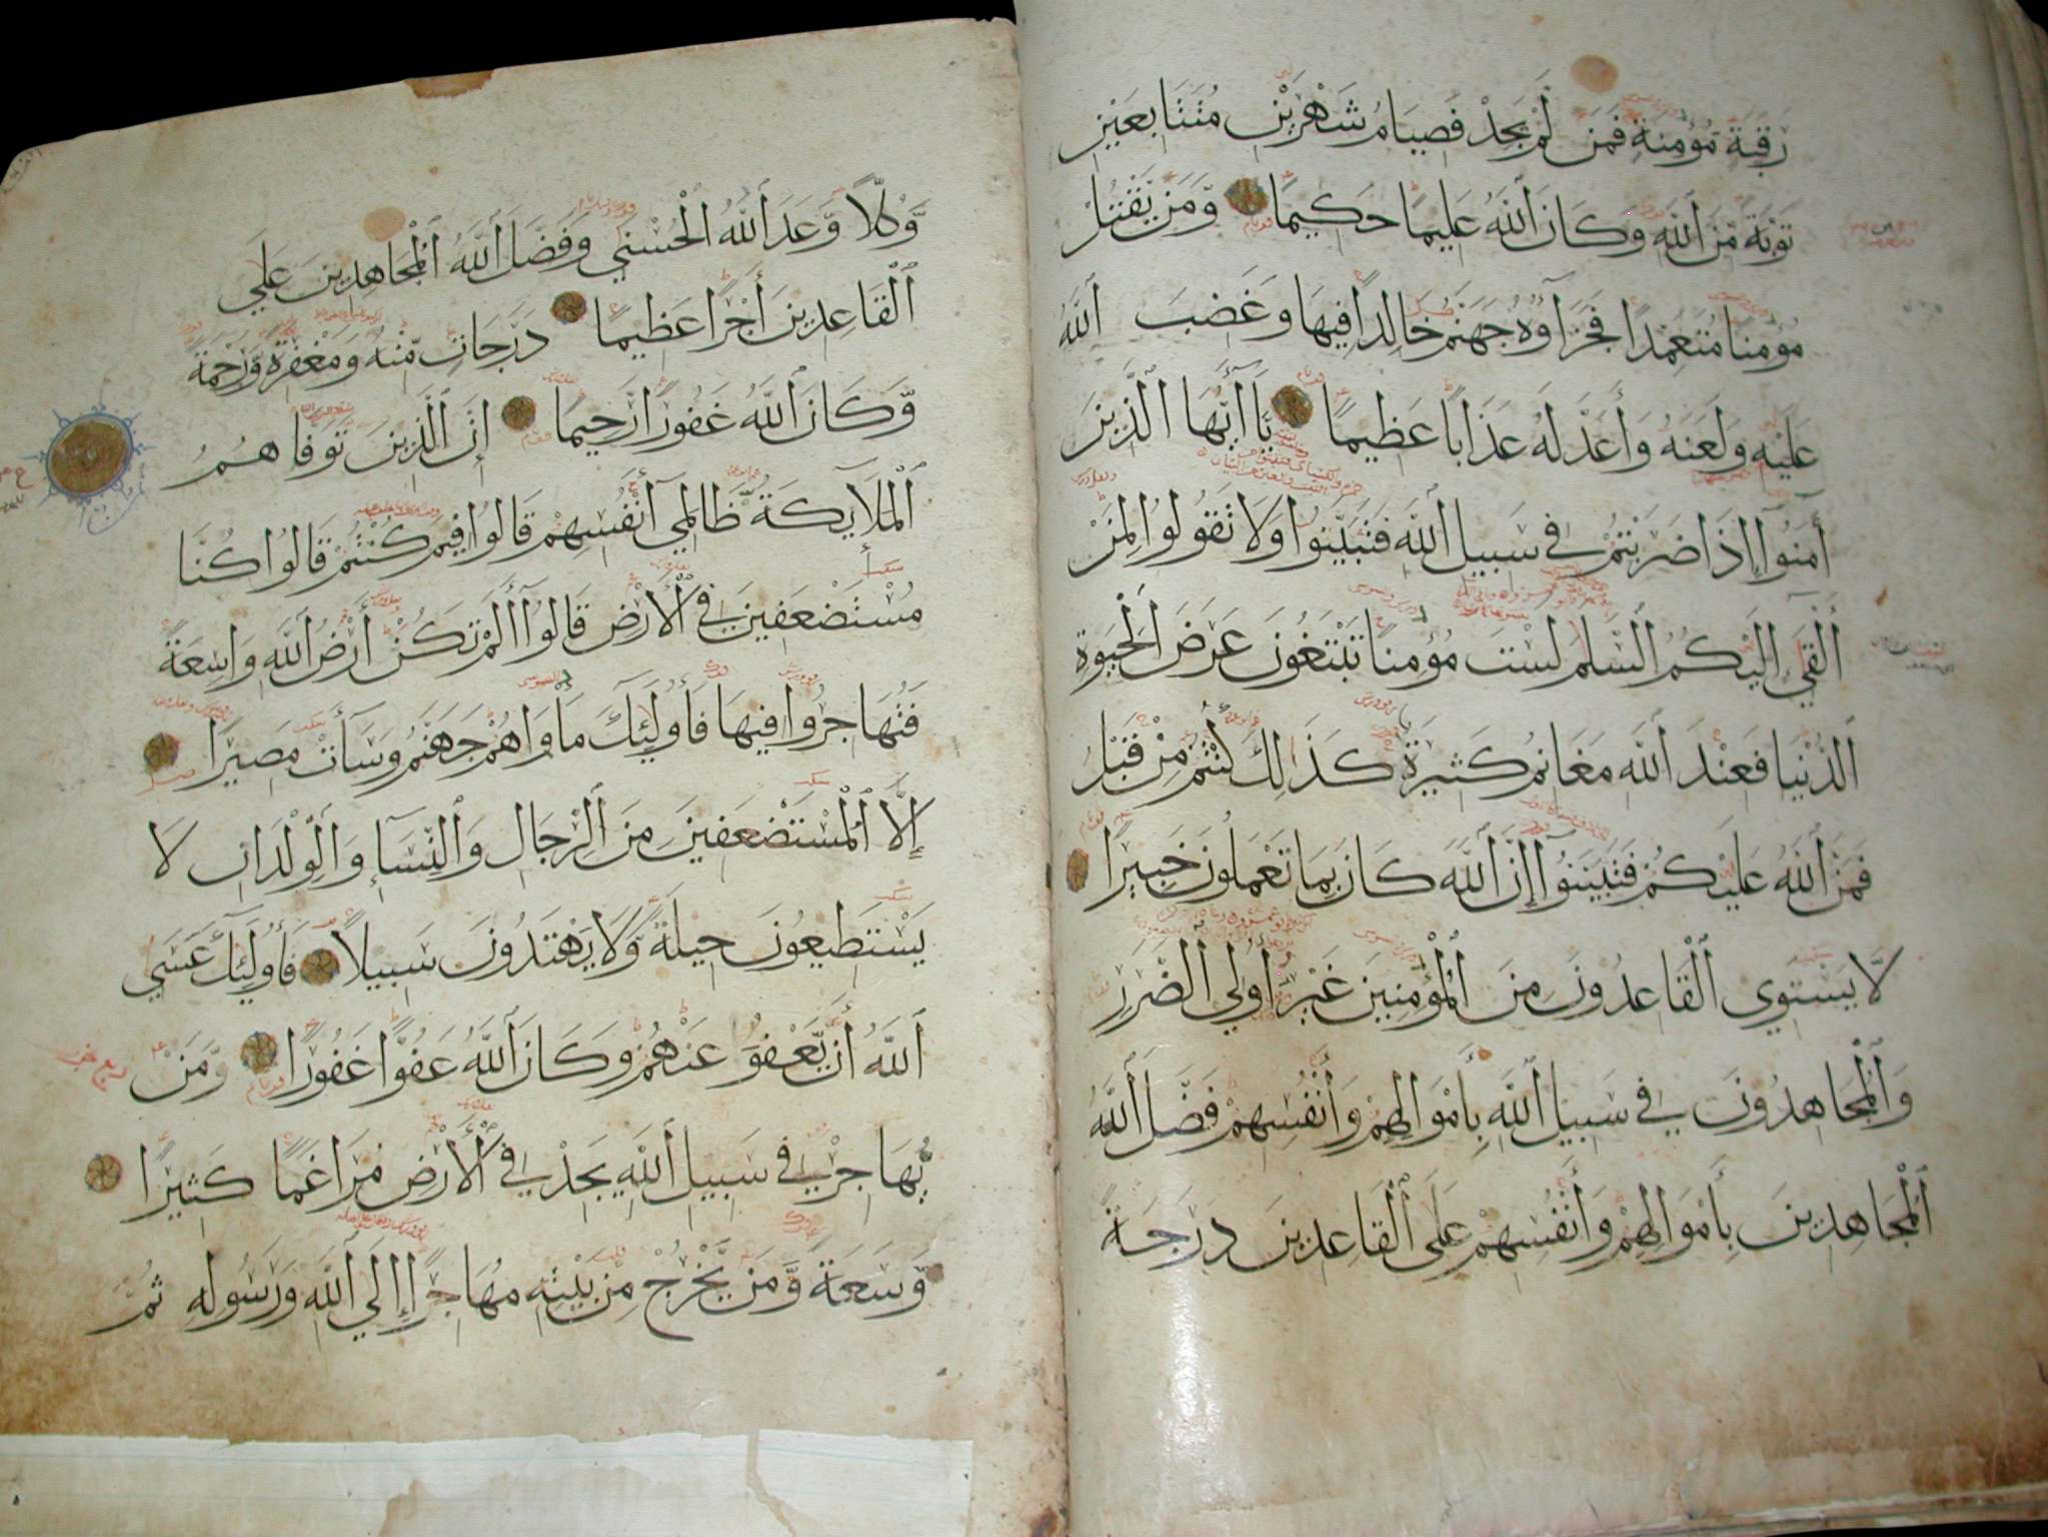 رَقَبَةٍ مُؤْمِنَةٍ فَمَن لَّمْ يَجِدْ فَصِيَامُ شَهْرَيْنِ مُتَتَابِعَيْنِ
تَوْبَةً مِّنَ ٱللَّهِ وَكَانَ ٱللَّهُ عَلِيمًا حَكِيمًا وَّمَن يَّقْتُلْ
مُؤْمِنًا مُتَعَمِّدًا فَجَزَآؤُهُ جَهَنَّمُ خَالِدًا فِيهَا وَغَضِبَ ٱللَّهُ
عَلَيْهِ وَلَعَنَهُ وَأَعَدَّ لَهُ عَذَابًا عَظِيمًا يَآ أَيُّهَا ٱلَّذِينَ
آمَنُوآ إِذَا ضَرَبْتُمْ فِي سَبِيلِ ٱللَّهِ فَتَبَيَّنُوا وَلَا تَقُولُوا لِمَنْ
أَلْقَي إِلَيْكُمُ ٱلسَّلَمَ لَسْتَ مُؤْمِنًا تَبْتَغُونَ عَرَضَ ٱلْحَيٰوةِ
ٱلدُّنْيَا فَعِنْدَ ٱللَّهِ مَغَانِمُ كَثِيرَةٌ كَذَٰلِكَ كُنْتُمْ مِّنْ قَبْلُ
فَمَنَّ ٱللَّهُ عَلَيْكُمْ فَتَبَيَّنُوآ إِنَّ ٱللَّهَ كَانَ بِمَا تَعْمَلُونَ خَبِيرًا
لَّا يَسْتَوِي ٱلْقَاعِدُونَ مِنَ ٱلْمُؤْمِنِينَ غَيْرُ أُولِي ٱلضَّرَرِ
وَٱلْمُجَاهِدُونَ فِي سَبِيلِ ٱللَّهِ بِأَمْوَالِهِمْ وَأَنْفُسِهِمْ فَضَّلَ ٱللَّهُ
ٱلْمُجَاهِدِينَ بِأَمْوَالِهِمْ وَأَنْفُسِهِمْ عَلَى ٱلْقَاعِدِينَ دَرَجَةً
وَّكُلًّا وَّعَدَ ٱللَّهُ ٱلْحُسْنَي وَفَضَّلَ ٱللَّهُ ٱلْمُجَاهِدِينَ عَلَي
ٱلْقَاعِدِينَ أَجْرًا عَظِيمًا دَرَجَاتٍ مِّنْهُ وَمَغْفِرَةً وَّرَحْمَةً
وَّكَانَ ٱللَّهُ غَفُورًا رَّحِيمًا إِنَّ ٱلَّذِينَ تَوَفَّاهُمُ
ٱلْمَلَآيِكَةُ ظَالِمِي أَنْفُسِهِمْ قَالُوا فِيمَ كُنْتُمْ قَالُوا كُنَّا
مُسْتَضْعَفِينَ فِي ٱلْأَرْضِ قَالُوآ أَلَمْ تَكُنْ أَرْضُ ٱللَّهِ وَاسِعَةً
فَتُهَاجِرُوا فِيهَا فَأُولَٰئِكَ مَأْوَاهُمْ جَهَنَّمُ وَسَآءَتْ مَصِيرًا
إِلَّا ٱلْمُسْتَضْعَفِينَ مِنَ ٱلرِّجَالِ وَٱلنِّسَآءِ وَٱلْوِلْدَانِ لَا
يَسْتَطِيعُونَ حِيلَةً وَّلَا يَهْتَدُونَ سَبِيلًا فَأُولَٰئِكَ عَسَي
ٱللَّهُ أَنْ يَّعْفُوَ عَنْهُمْ وَكَانَ ٱللَّهُ عَفُوًّا غَفُورًا وَّمَنْ
يُّهَاجِرْ فِي سَبِيلِ ٱللَّهِ يَجِدْ فِي ٱلْأَرْضِ مُرَاغَمًا كَثِيرًا
وَّسَعَةً وَّمَنْ يَّخْرُجْ مِنْ بَيْتِهِ مُهَاجِرًا إِلَي ٱللَّهِ وَرَسُولِهِ ثُمَّ